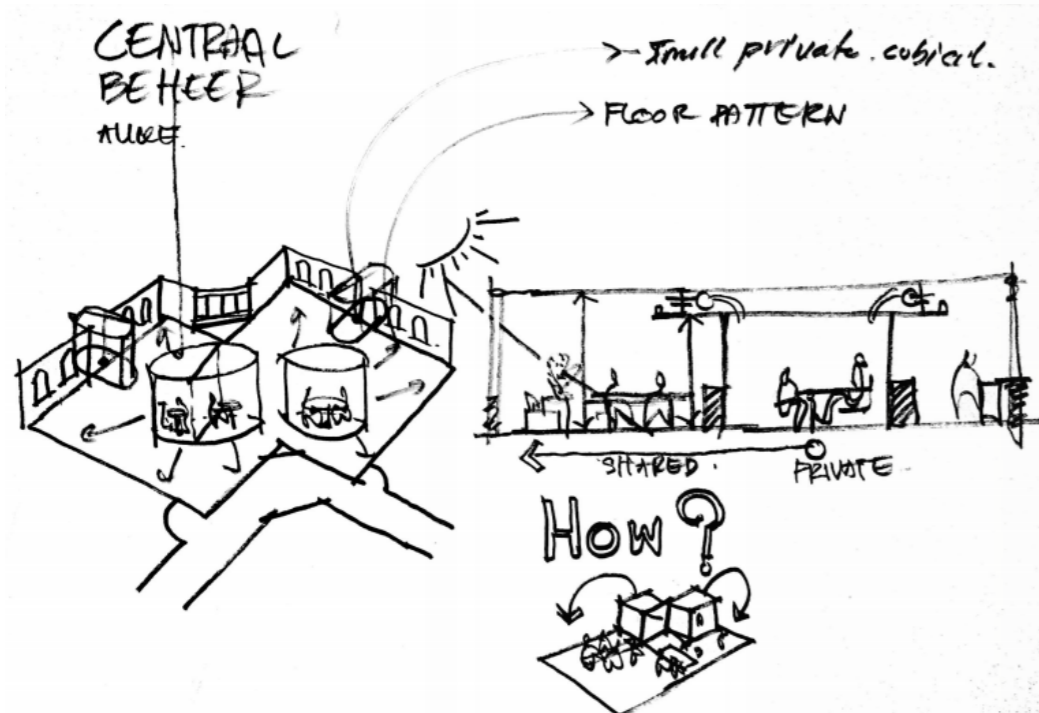 CENTRAAL
BEHEER
Small private cubical.
FLOOR PATTERN
SHARED.
PRIVATE
How?